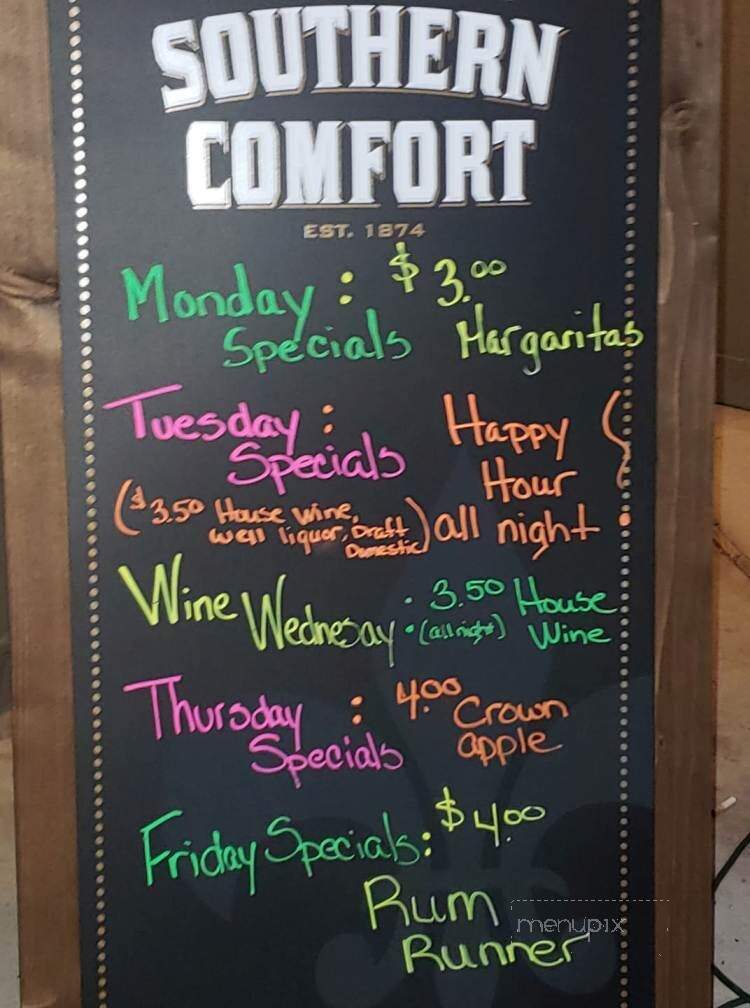 SOUTHERN
COMFORT
EST. 1874
Monday : $3.00
Specials Margaritas
Tuesday : Happy
Specials Hour
($3.50 House wine, all night
well liquor, Draft
Domestic)
Wine Wednesay • 3.50 House
• (all night) Wine
Thursday : 4.00 Crown
Specials apple
Friday Specials: $4.00
Rum
Runner
menupix